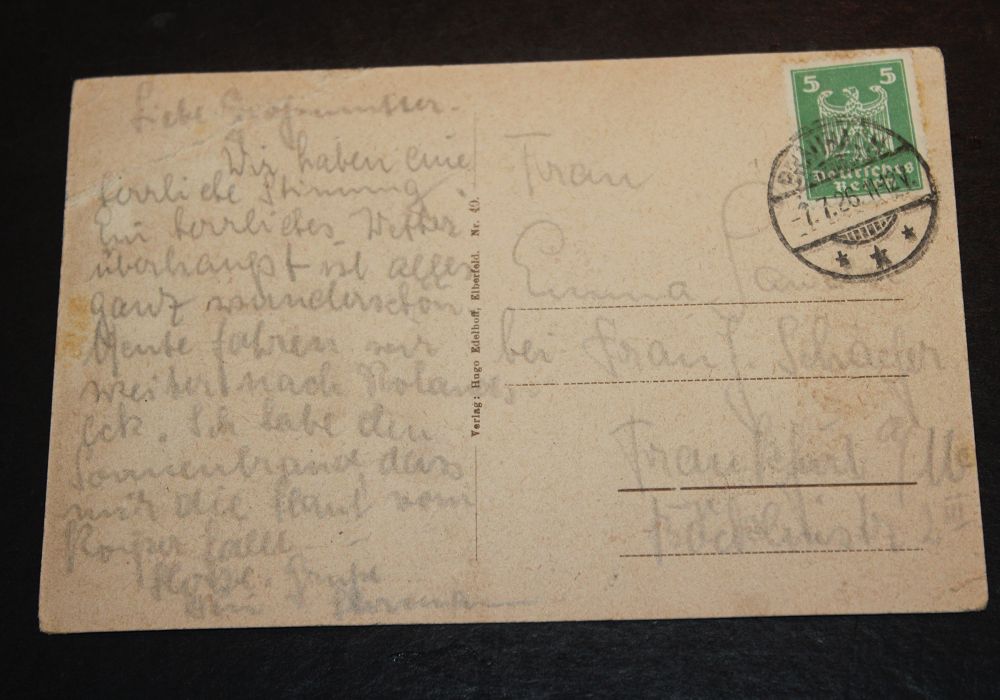 Liebe Grossmutter.
Wir haben eine
herrliche Stimmung.
Ein herrliches Wetter
überhaupt ist alles
ganz wunderschön
Heute fahren wir
weiter nach Rolands
eck. Ich habe den
Sonnenbrand, dass
mir die Haut vom
Körper fällt
Herzl. Grüße
Dein
Verlag: Hugo Edelhoff, Elberfeld. Nr. 40.
5 5
Deutsches
7.7.26. 11-12 V.
Frau
Emma
bei Franz Schäfer
Frankfurt a/M
2 III